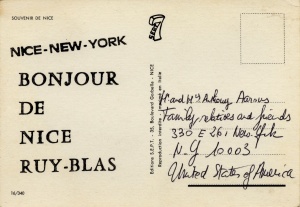 SOUVENIR DE NICE
NICE-NEW-YORK
BONJOUR
DE
NICE
RUY-BLAS
16/340
Editions S.E.P.T. - 35, Boulevard Gorbella - NICE
Reproduction interdite - Imprimé en Italie
Mr and Mrs Anthony Aarons
Family, relatives and friends
330 E 26, New-York
N-Y 10003
United States of America